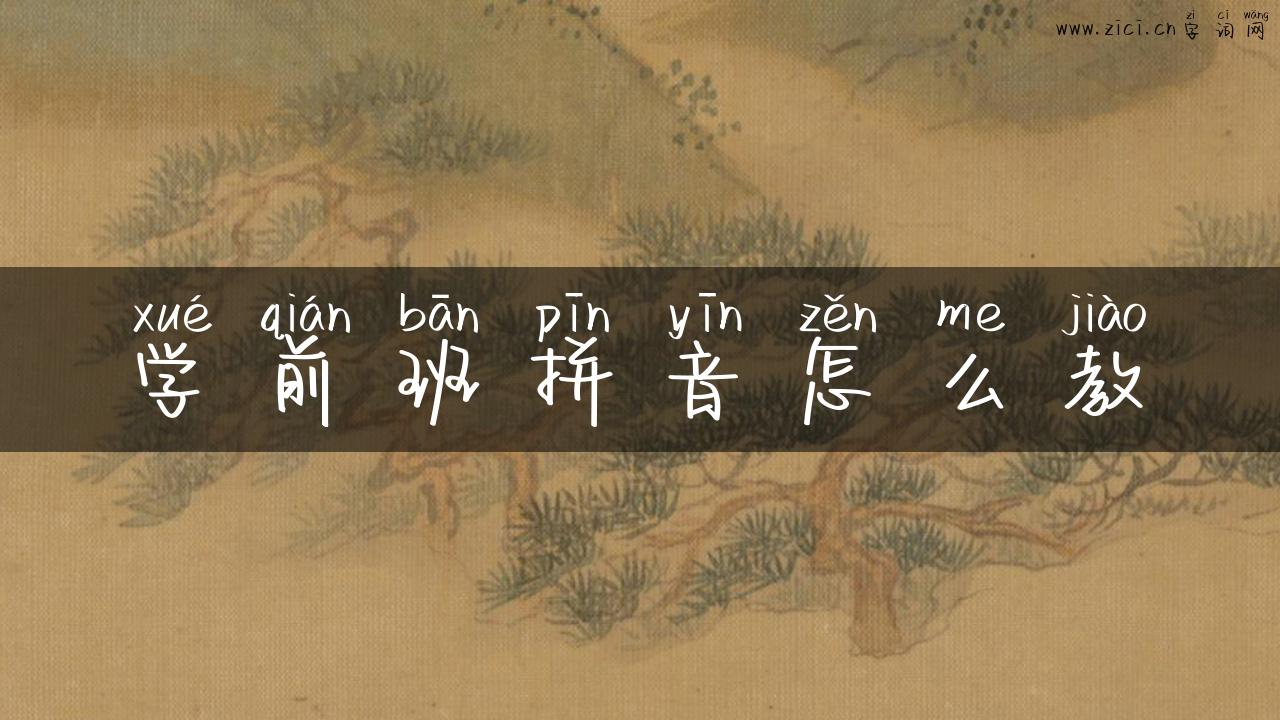 zì cí wǎng
www.zici.cn 字 词 网
xué qián bān pīn yīn zěn me jiào
学 前 班 拼 音 怎 么 教